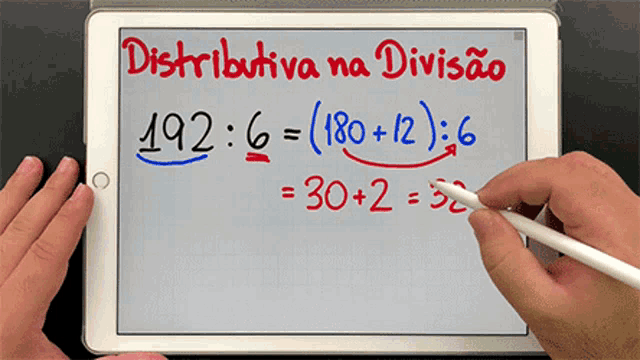 Distributiva na Divisão
192 : 6 = (180 + 12) : 6
= 30 + 2 = 32